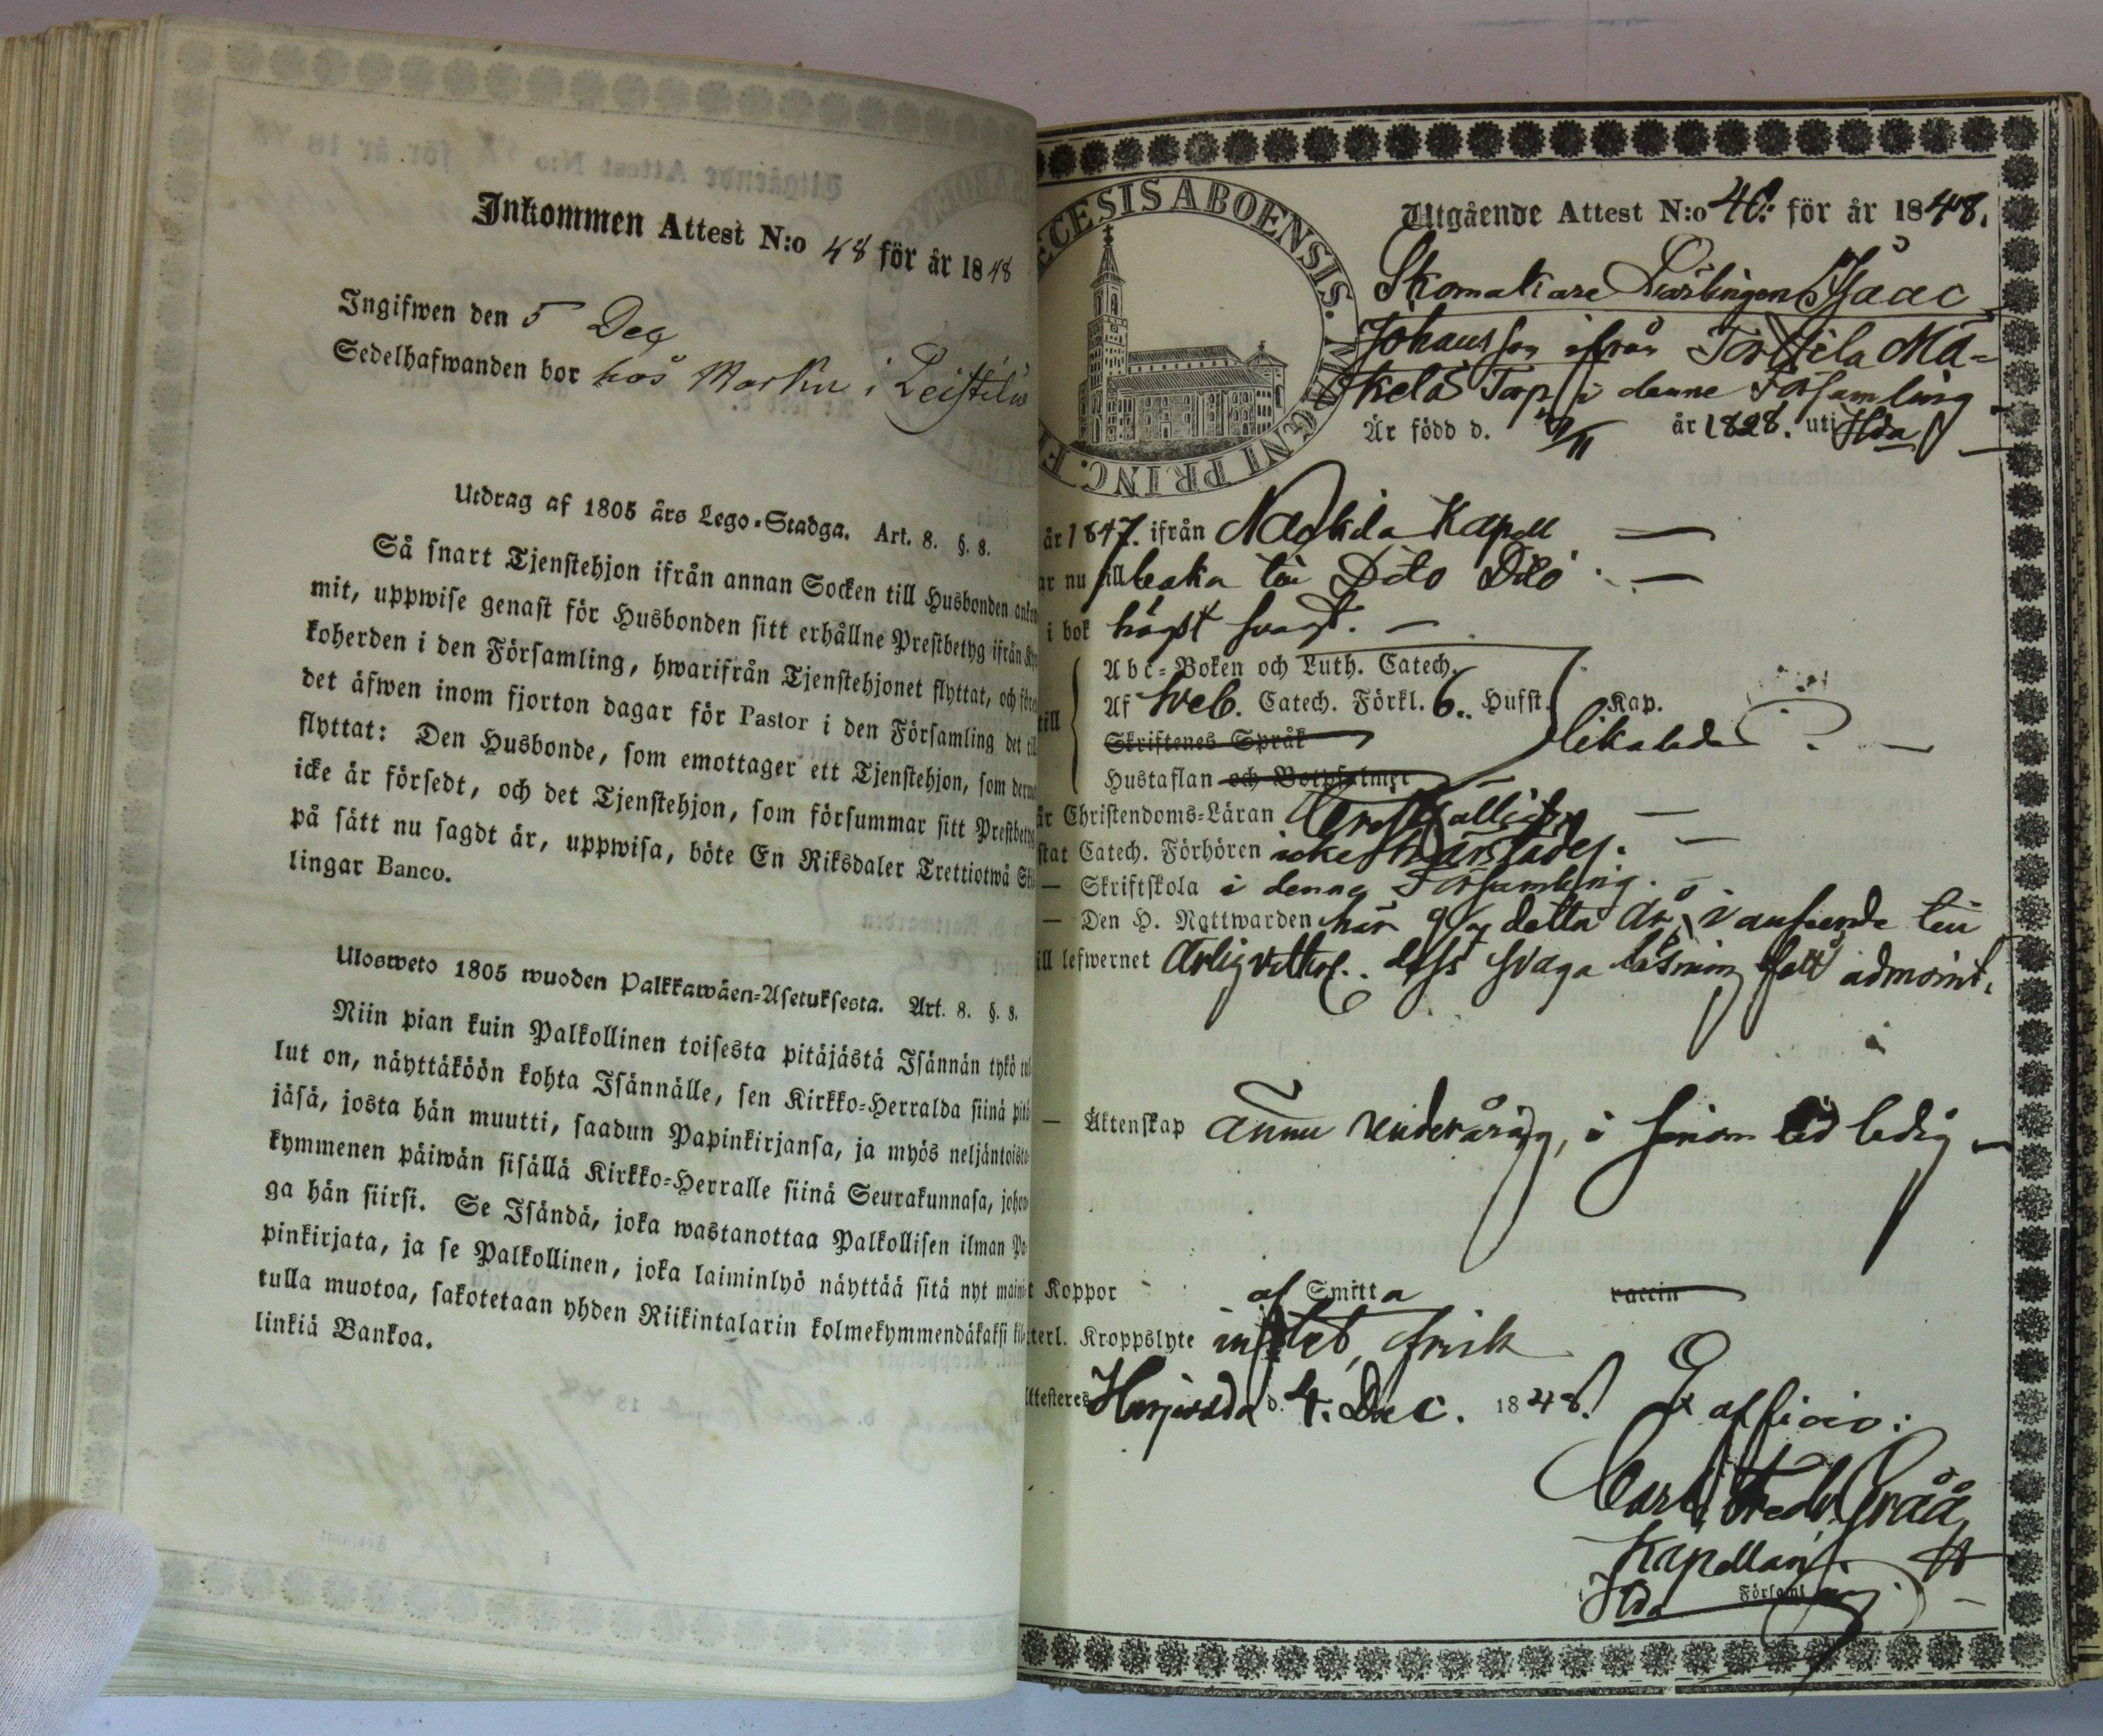 Inkommen Attest N:o 48 för år 1848
Ingifwen den 5 Dec
Sedelhafwanden bor hos i Leistilä
Utdrag af 1805 års Lego-Stadga. Art. 8. §. 8.
Så snart Tjenstehjon ifrån annan Socken till Husbonden ankom
mit, uppwise genast för Husbonden sitt erhållne Prestbetyg ifrån Kyr
koherden i den Församling, hwarifrån Tjenstehjonet flyttat, och före
det äfwen inom fjorton dagar för Pastor i den Församling det till
flyttat: Den Husbonde, som emottager ett Tjenstehjon, som dermed
icke är försedt, och det Tjenstehjon, som försummar sitt Prestbetyg
på sätt nu sagdt är, uppwisa, böte En Riksdaler Trettiotwå Skil
lingar Banco.
Ulosweto 1805 wuoden Palkkawäen-Asetuksesta. Art. 8. §. 8.
Niin pian kuin Palkollinen toisesta pitäjästä Isännän tykö tul
lut on, näyttäköön kohta Isännälle, sen Kirkko-Herralda siinä pitä
jäsä, josta hän muutti, saadun Papinkirjansa, ja myös neljäntoista
kymmenen päiwän sisällä Kirkko-Herralle siinä Seurakunnasa, johon
ga hän siirsi. Se Isändä, joka wastanottaa Palkollisen ilman Pa
pinkirjata, ja se Palkollinen, joka laiminlyö näyttää sitä nyt mainit
tulla muotoa, sakotetaan yhden Riikintalarin kolmekymmendäkaksi kil
linkiä Bankoa.
ECESIS ABOENSIS. MAGNI PRINC. F
Utgående Attest N:o 40. för år 1848.
Skomakare Lärlingen Isaac
Johansson ifrån Torttila Mä-
kelä Torp i denne Församling
Är född d. 9/11 år 1828. uti Hda
år 1847. ifrån Nackila Kapell
ar nu tillbaka till Dito Dito
i bok högst svagt.
till
Abc-Boken och Luth. Catech.
Af Sveb. Catech. Förkl. 6. Hufst. Kap.
Skriftenes Språk likaledes
Hustaflan och Botpsalmer
är Christendoms-Läran
stat Catech. Förhören icke härstädes.
— Skriftskola i denna Församling.
— Den H. Nattwarden här detta år, i anseende till
ill lefwernet ärlig dess svaga läsning admonit.
— Äktenskap ännu underårig, i sinom tid ledig
t Koppor af Smitta vaccin
terl. Kroppslyte intet, frisk
ttesteres Harjavalda d. 4. Dec. 1848. Ex officio:
Carl Fredr. Gråå
Kapellan
i Hda Församl